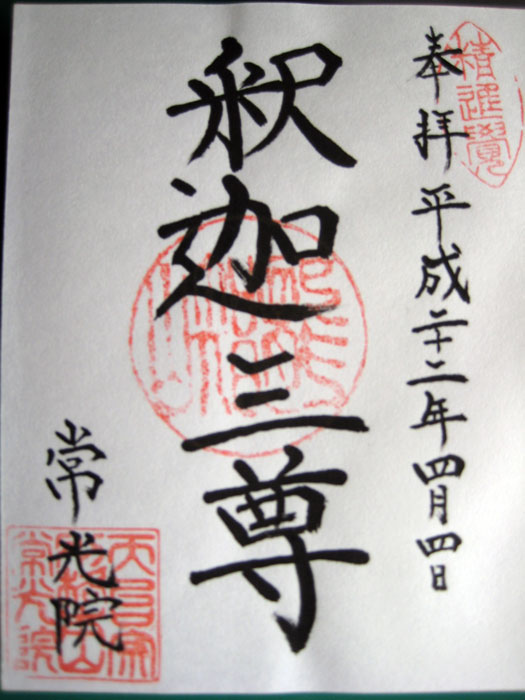 奉拝 平成二十二年四月四日
釈迦三尊
常光院
精進覺